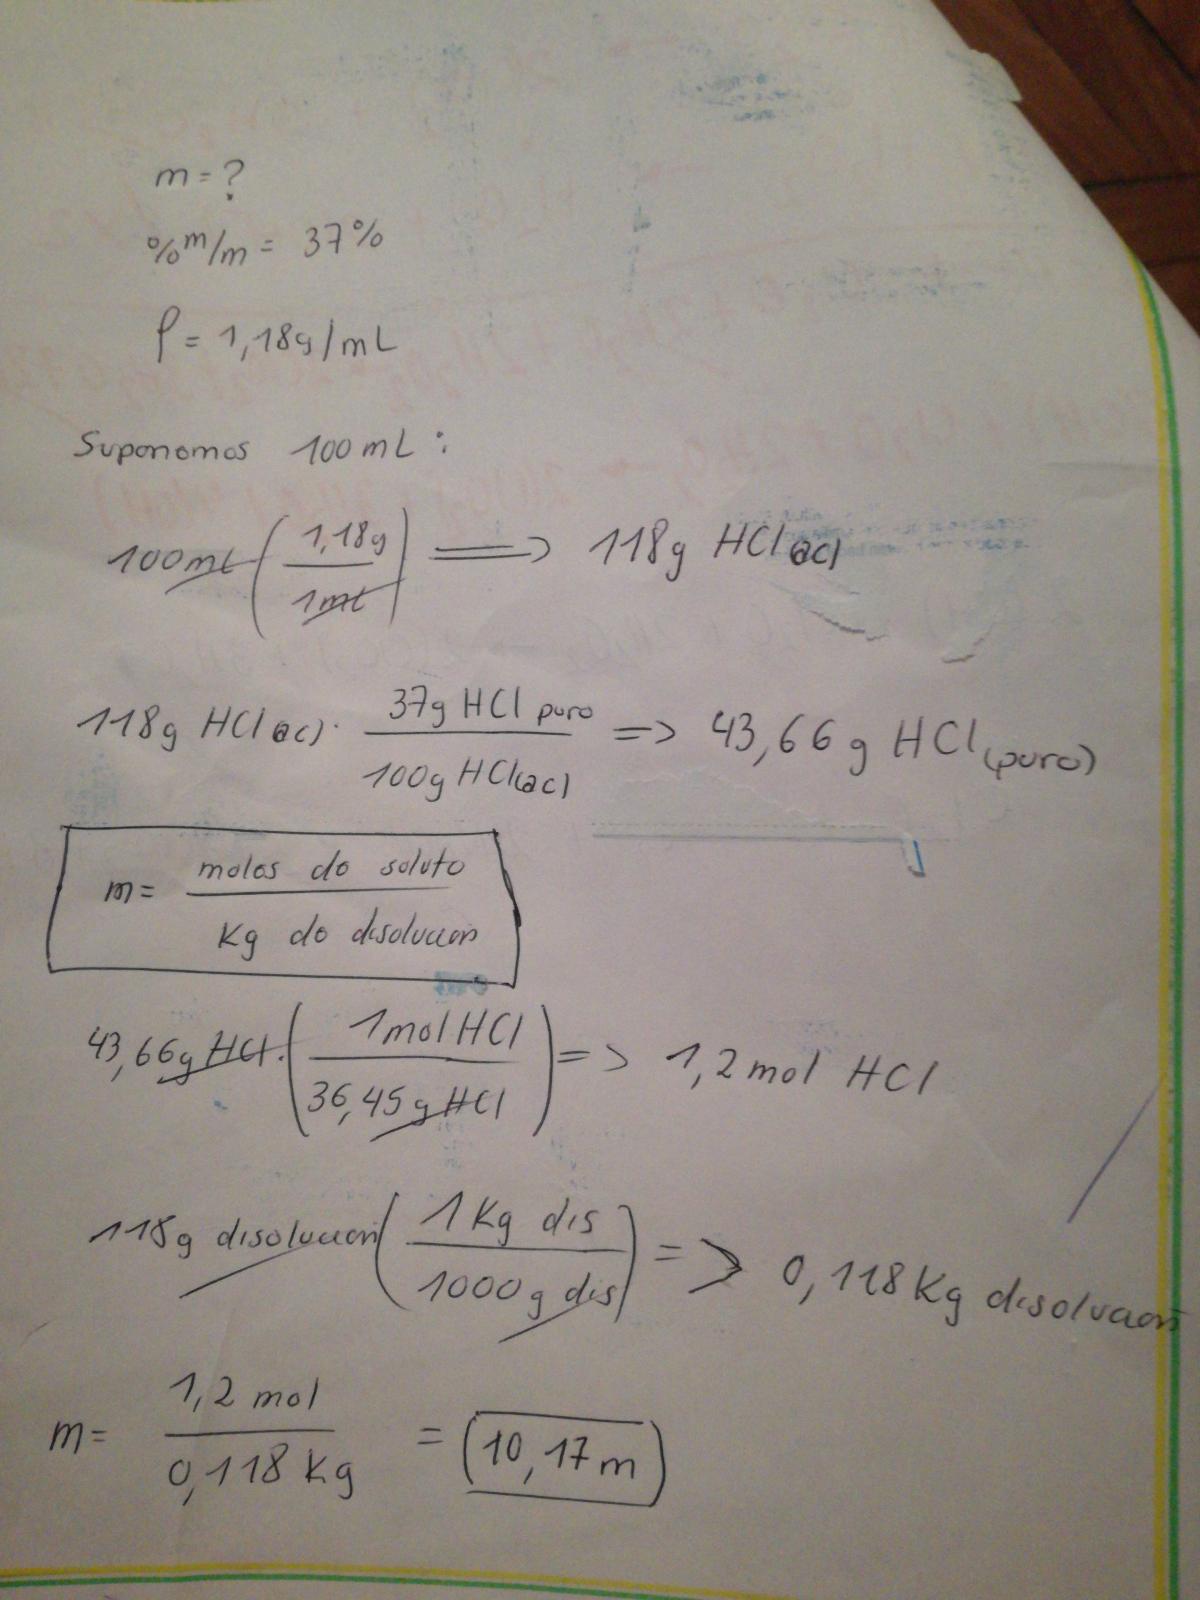 m = ?
% m/m = 37%
ρ = 1,18g/mL
Suponemos 100 mL :
100mL ( 1,18g / 1mL ) => 118g HCl(ac)
118g HCl(ac) · 37g HCl puro / 100g HCl(ac) => 43,66 g HCl (puro)
m = moles de soluto / Kg de disolucion
43,66g HCl · ( 1mol HCl / 36,45 g HCl ) => 1,2 mol HCl
118g disolucion ( 1 Kg dis / 1000 g dis ) => 0,118 Kg disolucion
m = 1,2 mol / 0,118 Kg = 10,17 m